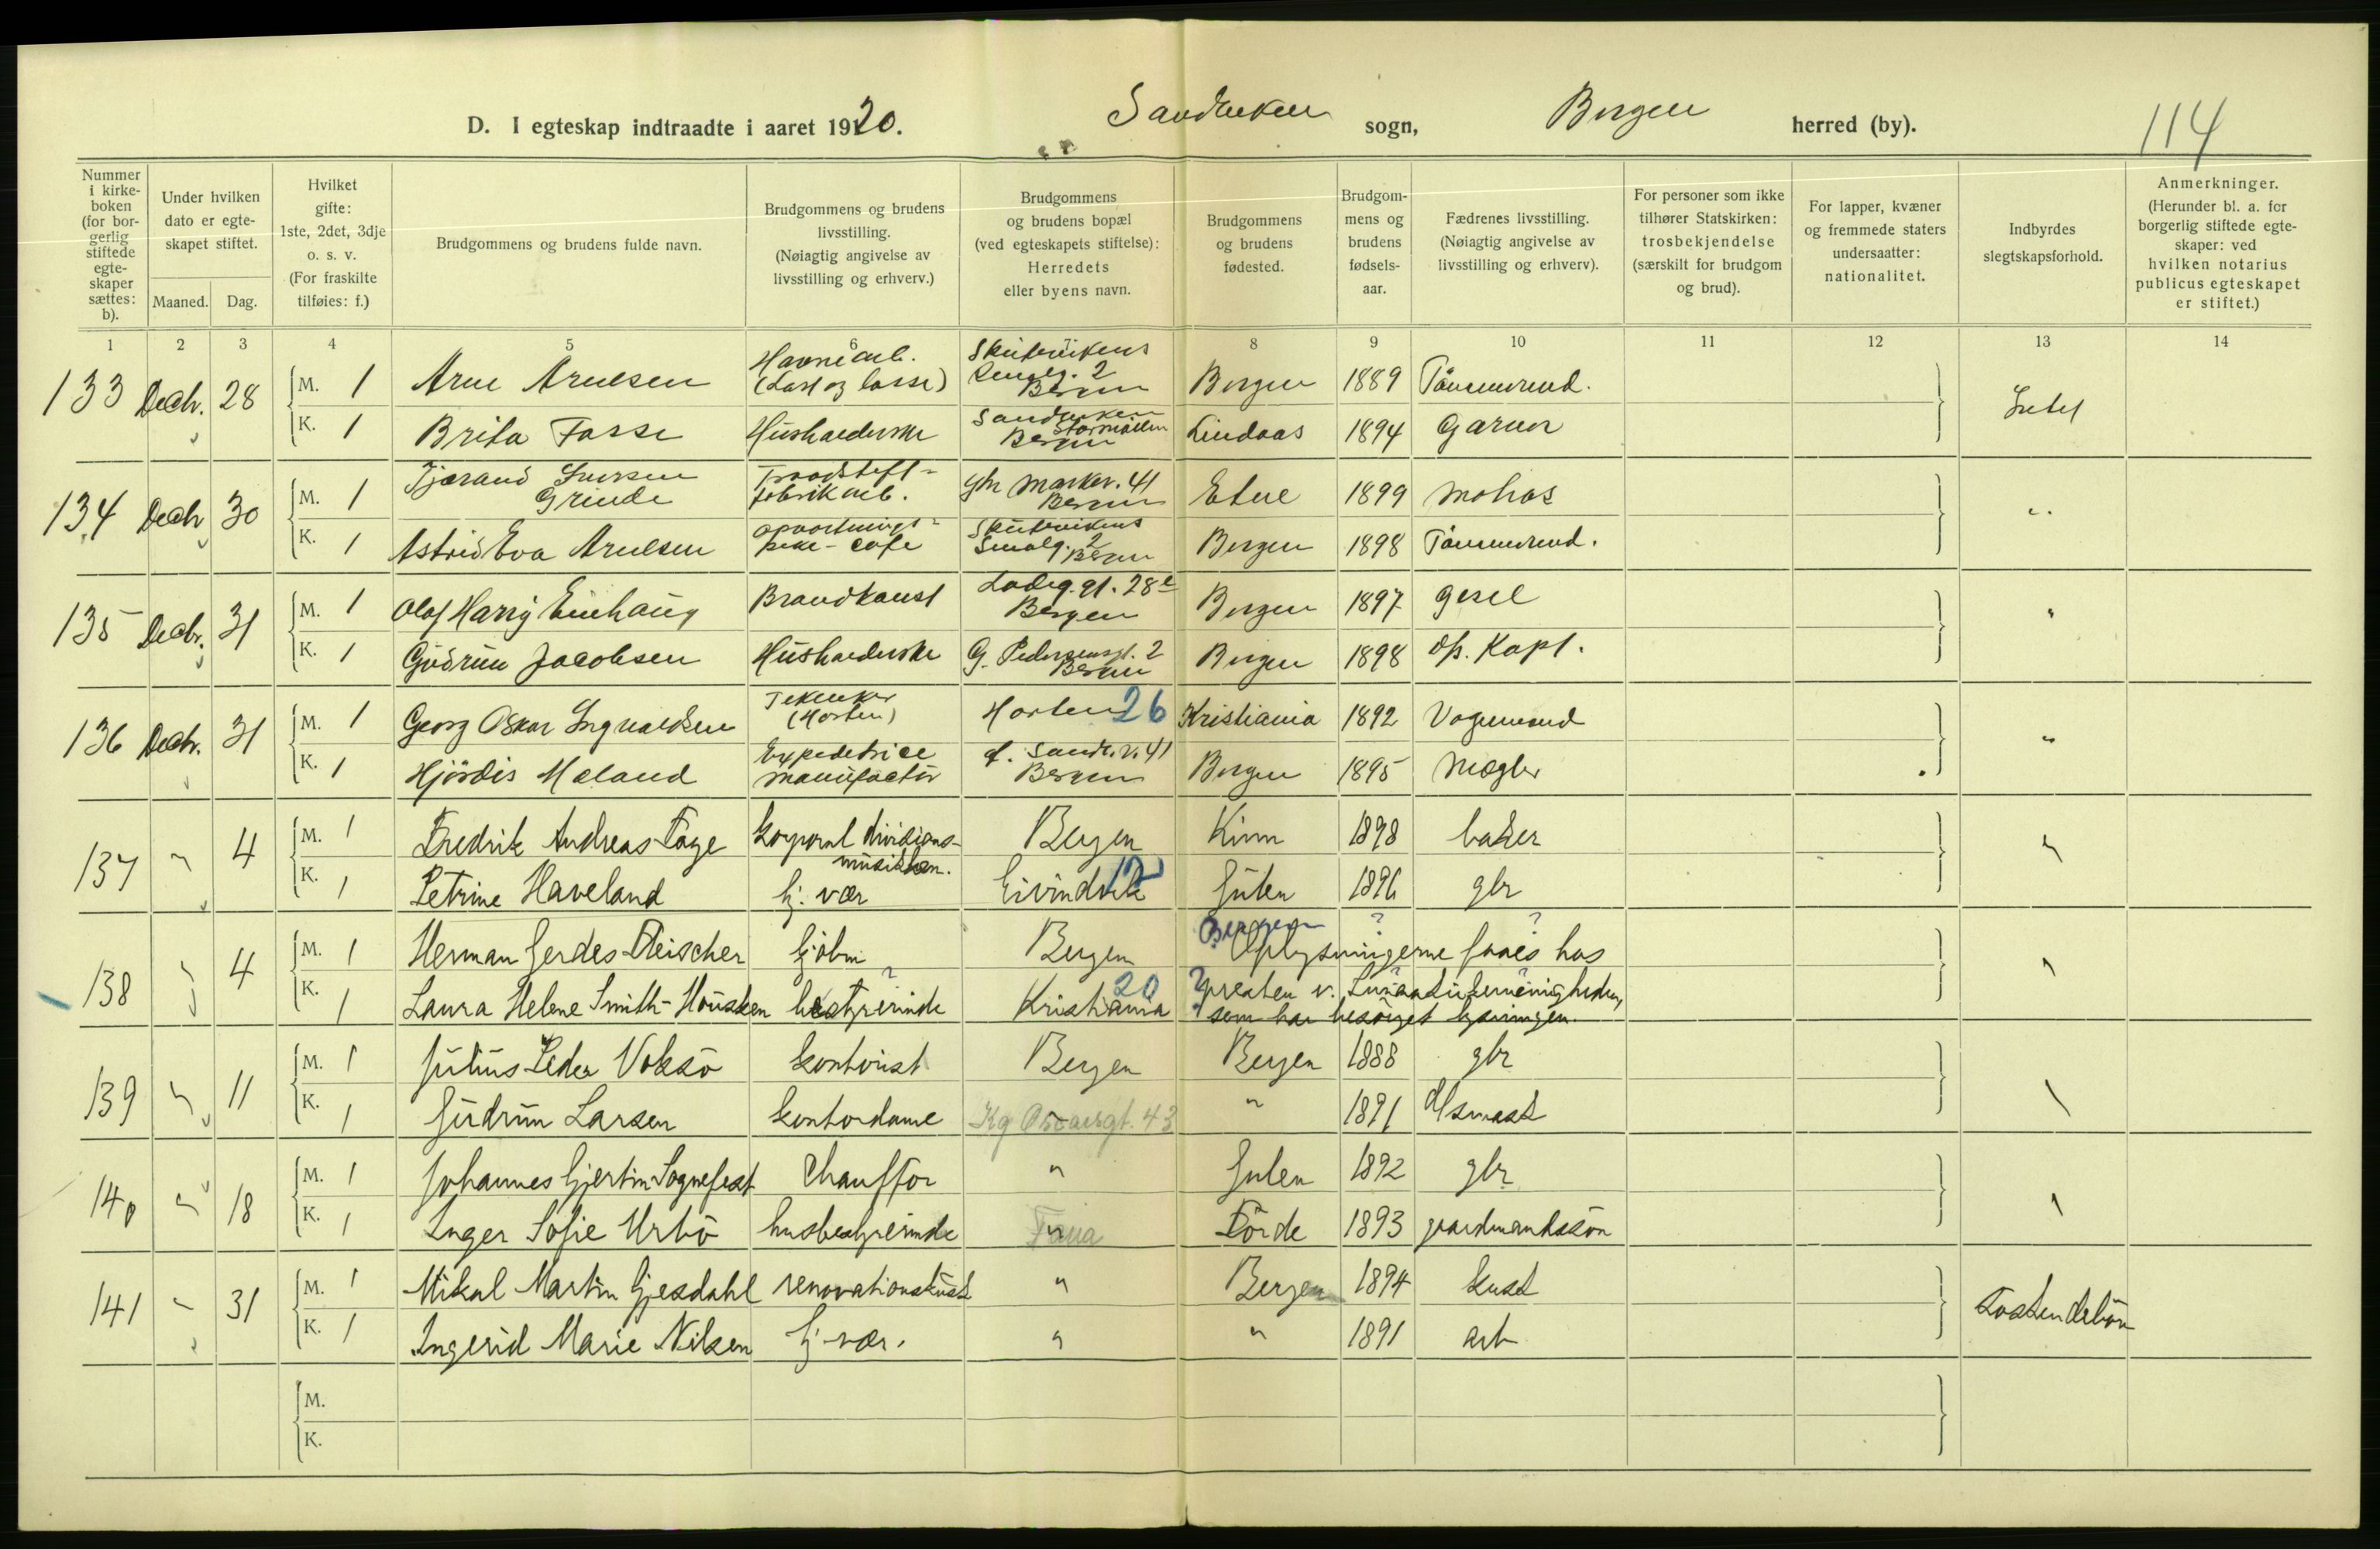 D. I egteskap indtraadte i aaret 1920.
Sandviken sogn, Bergen herred (by).
114
Nummer i kirke-boken (for bor-gerlig stiftede egte-skaper sættes: b).
Under hvilken dato er egte-skapet stiftet.
Maaned. Dag.
Hvilket gifte: 1ste, 2det, 3dje o. s. v. (For fraskilte tilføies: f.)
Brudgommens og brudens fulde navn.
Brudgommens og brudens livsstilling. (Nøiagtig angivelse av livsstilling og erhverv.)
Brudgommens og brudens bopæl (ved egteskapets stiftelse): Herredets eller byens navn.
Brudgommens og brudens fødested.
Brudgom-mens og brudens fødsels-aar.
Fædrenes livsstilling. (Nøiagtig angivelse av livsstilling og erhverv).
For personer som ikke tilhører Statskirken: trosbekjendelse (særskilt for brudgom og brud).
For lapper, kvæner og fremmede staters undersaatter: nationalitet.
Indbyrdes slegtskapsforhold.
Anmerkninger. (Herunder bl. a. for borgerlig stiftede egte-skaper: ved hvilken notarius publicus egteskapet er stiftet.)
1 2 3 4 5 6 7 8 9 10 11 12 13 14
133 Decbr. 28 M. 1 Arne Arnesen Havnearb. (Last og losse) Skutevikens Smalg. 2 Bergen Bergen 1889 Tömmermd. Intet
K. 1 Brita Fosse Husholderske Sandviken Stormöllen Bergen Lindaas 1894 Garver
134 Decbr 30 M. 1 Tjerand Iversen Grinde Traadstift-fabrikarb. Ytr Markev. 41 Bergen Etne 1899 Mobas "
K. 1 Astrid Eva Arnesen Opvartnings-pike - cafe Skutevikens Smalg. 2 Bergen Bergen 1898 Tömmermd.
135 Decbr. 31 M. 1 Olaf Harry Einhaug Brandkonst Ladeg. gt. 28 Bergen Bergen 1897 Gesel "
K. 1 Gudrun Jacobsen Husholderske G. Pedersensgt. 2 Bergen Bergen 1898 Sk. Kapt.
136 Decbr. 31 M. 1 Georg Oskar Ingvaldsen Tekniker (Horten) Horten 26 Kristiania 1892 Vognmand "
K. 1 Hjördis Mæland Expeditrice manufactur Sandv. v. 41 Bergen Bergen 1895 Mægler
137 " 4 M. 1 Fredrik Andreas Tage korporal divisions-musikken. Bergen Kinn 1898 baker "
K. 1 Petrine Haveland hj. vær Eivindvik 12 Gulen 1896 gbr
138 " 4 M. 1 Herman Gerdes Fleischer kjöbm Bergen Bergen ? ? Oplysningerne faaes hos "
K. 1 Laura Helene Smith-Housken bestyrerinde ? Kristiania 20 ? presten v. Sunnaas, som har besörget lysningen.
139 " 11 M. 1 Julius Peder Voksö kontorist Bergen Bergen 1888 gbr "
K. 1 Gudrun Larsen kontordame Kg Oscarsgt. 43 " 1891
140 " 18 M. 1 Johannes Gjertin Sognefest Chauffør " Gulen 1892 gbr "
K. 1 Inger Sofie Urbö husbestyrerinde Fana " Förde 1893 gaardmandssön
141 " 31 M. 1 Mikal Martin Gjesdahl renovationskusk " Bergen 1894 kusk Söskendebörn
K. 1 Ingerid Marie Nilsen hj-vær. " " 1891 arb
M.
K.